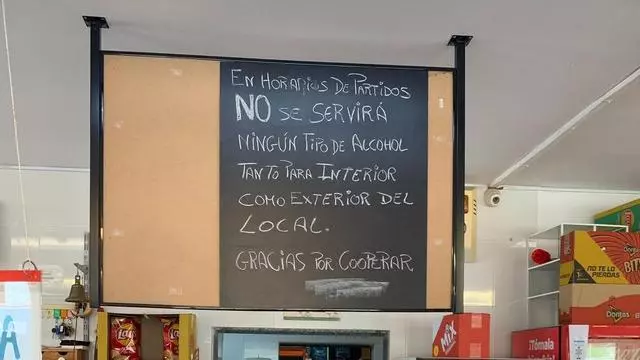 EN HORARIOS DE PARTIDOS
NO SE SERVIRÁ
NINGÚN TIPO DE ALCOHOL
TANTO PARA INTERIOR
COMO EXTERIOR DEL
LOCAL.
GRACIAS POR COOPERAR
Lay's
MIX
¡Tómala
NO TE LO
PIERDAS
Doritos